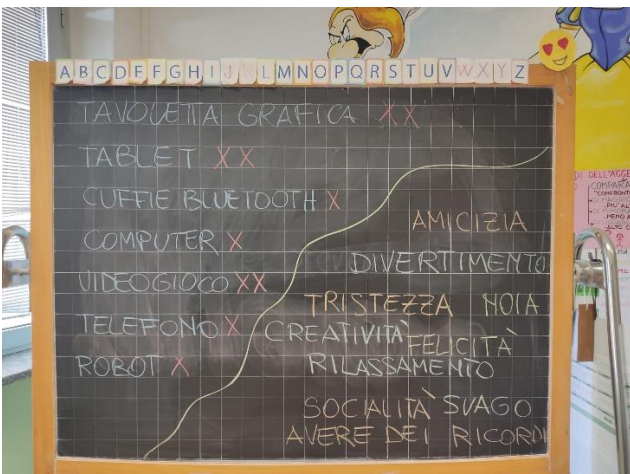 ABCDEFGHIJKLMNOPQRSTUVWXYZ
TAVOLETTA GRAFICA XX
TABLET XX
CUFFIE BLUETOOTH X
COMPUTER X
VIDEOGIOCO XX
TELEFONO X
ROBOT X
AMICIZIA
DIVERTIMENTO
TRISTEZZA NOIA
CREATIVITÀ FELICITÀ
RILASSAMENTO
SOCIALITÀ SVAGO
AVERE DEI RICORDI
DI DELL'AGGE
COMPARA